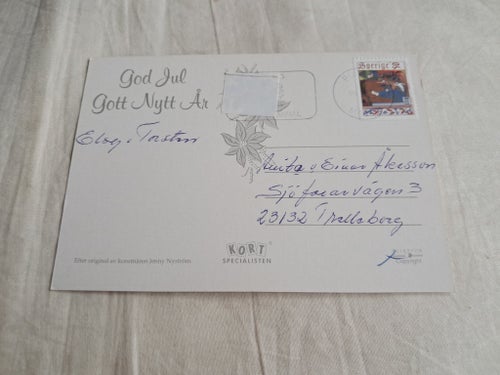 God Jul
Gott Nytt År
Sverige
Elvy o Torsten
Anita o Einar Åkesson
Sjöfararvägen 3
23132 Trelleborg
KORT
SPECIALISTEN
Efter original av konstnären Jenny Nyström
Copyright